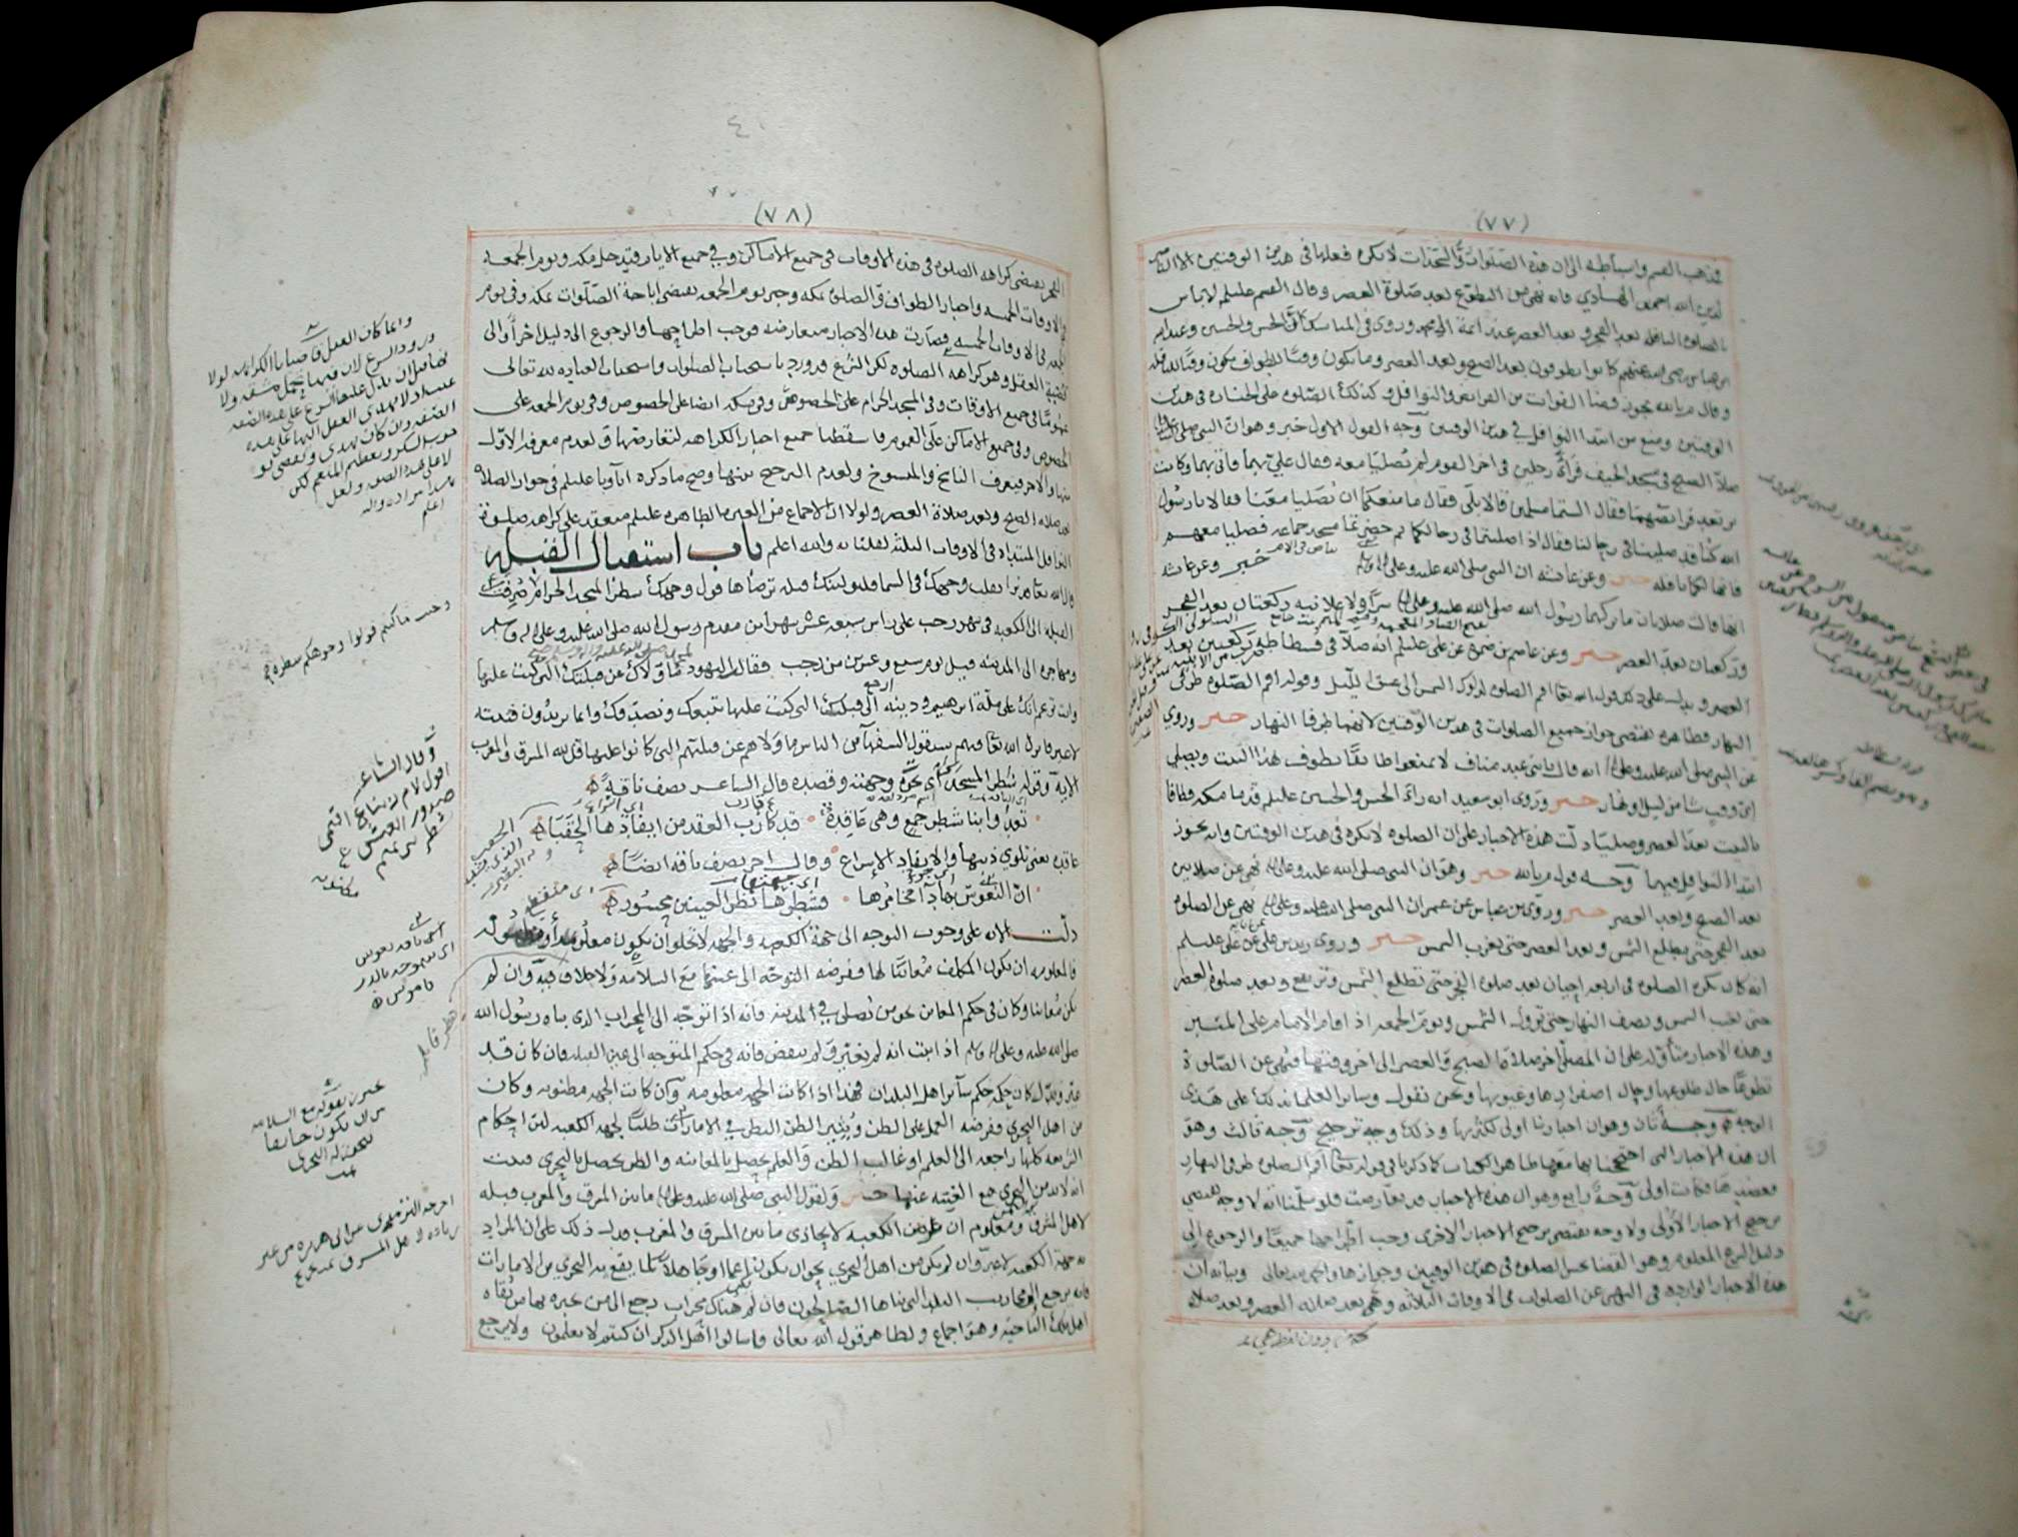 (٧٧)
فذهب القسم واسباطه الى ان هذه الصلوات والسجدات لا يكره فعلها في هذين الوقتين الا
احمد بن الهادي فانه نهى عن التطوع بعد صلوة العصر وقال القسم عليلم لا باس
وبعد العصر عند ائمة ال محمد وروي في المناسك عن الحسن والحسين وعبد الله
ابن عباس رضي الله عنهم كانوا يطوفون بعد الصبح وبعد العصر وما يكون وقتا للطواف يكون وقتا للنافله
وقال م بالله يجوز قضا الفوات من الفرائض والنوافل وكذلك الصلوه على الجنازه في هذين
الوقتين ومنع من ابتدا النوافل في هذين الوقتين وجه القول الاول خبر وهو ان النبي صلى
صلا الصبح في مسجد الخيف فراى رجلين في اخر القوم لم يصليا معه فقال علي بهما فاتي بهما وكانت
ترتعد فرائصهما فقال الستما مسلمين قالا بلى فقال ما منعكما ان تصليا معنا فقالا يا رسول
الله كنا قد صلينا في رحالنا فقال اذا صليتما في رحالكما ثم حضرتما مسجد جماعه فصليا معهم
فانها لكما نافله خبر وعن عائشه ان النبي صلى الله عليه وعلى اله
انها قالت صلاتان ما تركهما رسول الله صلى الله عليه وعلى اله سرا ولا علانيه ركعتان بعد الفجر
وركعتان بعد العصر خبر وعن عاصم بن ضمره عن علي عليلم انه صلا في فسطاطه ركعتين بعد
العصر ويدل على ذلك قول الله تعا اقم الصلوه لدلوك الشمس الى غسق الليل وقوله اقم الصلوه طرفي
النهار فظاهره يقتضي جواز جميع الصلوات في هذين الوقتين لانهما طرفا النهار خبر وروي
عن النبي صلى الله عليه وعلى اله انه قال يا بني عبد مناف لا تمنعوا طائفا يطوف هذا البيت ويصلي
اي وقت شا من ليل او نهار خبر وروى ابو سعيد انه راى الحسن والحسين عليلم قدما مكه فطافا
بالبيت بعد العصر وصليا دلت هذه الاخبار على ان الصلوه لا تكره في هذين الوقتين وانه يجوز
ابتدا النوافل فيهما وجه قول م بالله خبر وهو ان النبي صلى الله عليه وعلى اله نهى عن صلاتين
بعد الصبح وبعد العصر خبر وروى بن عباس عن عمر ان النبي صلى الله عليه وعلى اله نهى عن الصلوه
بعد الفجر حتى تطلع الشمس وبعد العصر حتى تغرب الشمس خبر وروى زيد بن علي عن علي عليلم
انه كان يكره الصلوه في اربعه احيان بعد صلوه الفجر حتى تطلع الشمس وترتفع وبعد صلوه العصر
حتى تغيب الشمس ونصف النهار حتى تزول الشمس ويوم الجمعه اذا قام الامام على المنبر
وهذه الاخبار متاوله على ان المصلي اخر صلاة الصبح والعصر الى اخر وقتها فنهي عن الصلوة
تطوعا حال طلوعها وحال اصفرارها وغيوبها ونحن نقول وسائر العلما بذلك على هذى
الوجه وجه ثان وهو ان اخبارنا اولى لكثرتها وذلك وجه ترجيح وجه ثالث وهو
ان هذه الاخبار التي احتججنا بها معها ظاهر الكتاب كما ذكرنا في قوله تعا اقم الصلوه طرفي النهار
فكانت اولى وجه رابع وهو ان هذه الاخبار قد تعارضت فلو سلمنا انه لا وجه يقتضي
ترجيح الاخبار الاولى ولا وجه يقتضي ترجيح الاخبار الاخرى وجب اطراحها جميعا والرجوع الى
دليل الشرع المعلوم وهو القضا بحسن الصلوه في هذين الوقتين وجوازها والحمد لله تعالى وبيانه ان
هذه الاخبار الوارده في النهي عن الصلوات في الاوقات الثلاثه وهي بعد صلاة العصر وبعد صلاه
(٧٨)
الفجر يقتضي كراهه الصلوه في هذه الاوقات في جميع الاماكن وفي جميع الايام فيدخل مكه ويوم الجمعه
والاوقات الخمسه واخبار الطواف والصلوة بمكه وخبر يوم الجمعه يقتضي اباحة الصلوات بمكه وفي يوم
الجمعه في الاوقات الخمسه فصارت هذه الاخبار متعارضه فوجب اطراحها والرجوع الى دليل اخر والى
قضية العقل وهو كراهه الصلوه لكن الشرع قد ورد باستحباب الصلوات واستحباب العباده لله تعالى
عموما في جميع الاوقات وفي المسجد الحرام على الخصوص وفي مكه ايضا على الخصوص وفي يوم الجمعه على
الخصوص وفي جميع الاماكن على العموم فاسقطنا جميع اخبار الكراهه لتعارضها ولعدم معرفه الاول
منها والاخر فيعرف الناسخ والمنسوخ ولعدم الترجيح بينها وصح ما ذكره اباونا عليلم في جواز الصلاه
بعد صلاه الصبح وبعد صلاة العصر ولولا ان الاجماع من العتره الطاهره عليلم منعقد على كراهه صلوة
النوافل المبتداه في الاوقات الثلثه لقلنا به والله اعلم باب استقبال القبله
قال الله تعا قد نرى تقلب وجهك في السما فلنولينك قبله ترضاها فول وجهك شطر المسجد الحرام صرفت
القبله الى الكعبه في شهر رجب على راس سبعه عشر شهرا من مقدم رسول الله صلى الله عليه وعلى اله وسلم
ومهاجره الى المدينه قيل يوم سبع وعشرين من رجب فقالت اليهود ما ولاك عن قبلتك التي كنت عليها
وانت تزعم انك على ملة ابرهيم ودينه ارجع الى قبلتك التي كنت عليها نتبعك ونصدقك وانما يريدون فتنته
لا غير فانزل الله تعا فيهم سيقول السفهآ من الناس ما ولاهم عن قبلتهم التي كانوا عليها قل لله المشرق والمغرب
الايه وقوله شطر المسجد اي نحوه وجهته وقصده قال الشاعر يصف ناقة
تعدو ابنا شطر جمع وهي عاقدة قد كارب العقد من ايفادها الحقبا
عاقده يعني تلوي ذنبها والايفاد الاسراع وقال اخر يصف ناقه ايضا
ان النعوس بها دآ مخامرها فشطرها نظر العينين محسور
دلت الايه على وجوب التوجه الى جهة الكعبه والجهه لا تخلوا ان يكون معلومه او مظنونه
فالمعلومه ان يكون المكلف معاينا لها ففرضه التوجه الى عينها مع السلامه ولا خلاف فيه وان لم
يكن معاينا وكان في حكم المعاين نحو من يصلي في المدينه فانه اذا توجه الى المحراب الذي بناه رسول الله
صلى الله عليه وعلى اله وسلم اذا ثبت انه لم يغير ولم ينقض فانه في حكم المتوجه الى عين القبله فان كان قد
غير وبدل كان حكمه حكم سآئر اهل البلدان فهذا اذا كانت الجهه معلومه وان كانت الجهه مظنونه وكان
من اهل التحري ففرضه العمل على الظن ويثير الظن النظر في الامارات طلبا لجهه الكعبه لان احكام
الشريعه كلها راجعه الى العلم او غالب الظن والعلم يحصل بالمعاينه والظن يحصل بالتحري فثبت
انه لا بد من التحري مع الغيبه عنها خبر ولقول النبي صلى الله عليه وعلى اله ما بين المشرق والمغرب قبله
لاهل المشرق ومعلوم ان عرض الكعبه لا يحاذى ما بين المشرق والمغرب فدل ذلك على ان المراد
به جهة الكعبه لا غير وان لم يكن من اهل التحري نحو ان يكون اعما او جاهلا لما يقع به التحري من الامارات
فانه يرجع الى محاريب البلد التي بناها الصالحون فان لم يكن هناك محراب رجع الى من يخبره بها من ثقاه
اهل تلك الناحيه وهو اجماع ولظاهر قول الله تعالى فاسالوا اهل الذكر ان كنتم لا تعلمون ولا يرجع
وحيث ما كنتم فولوا وجوهكم شطره
وقال الشاعر
اقول لام زنباع اقيمي
صدور العيس
شطر بني تميم